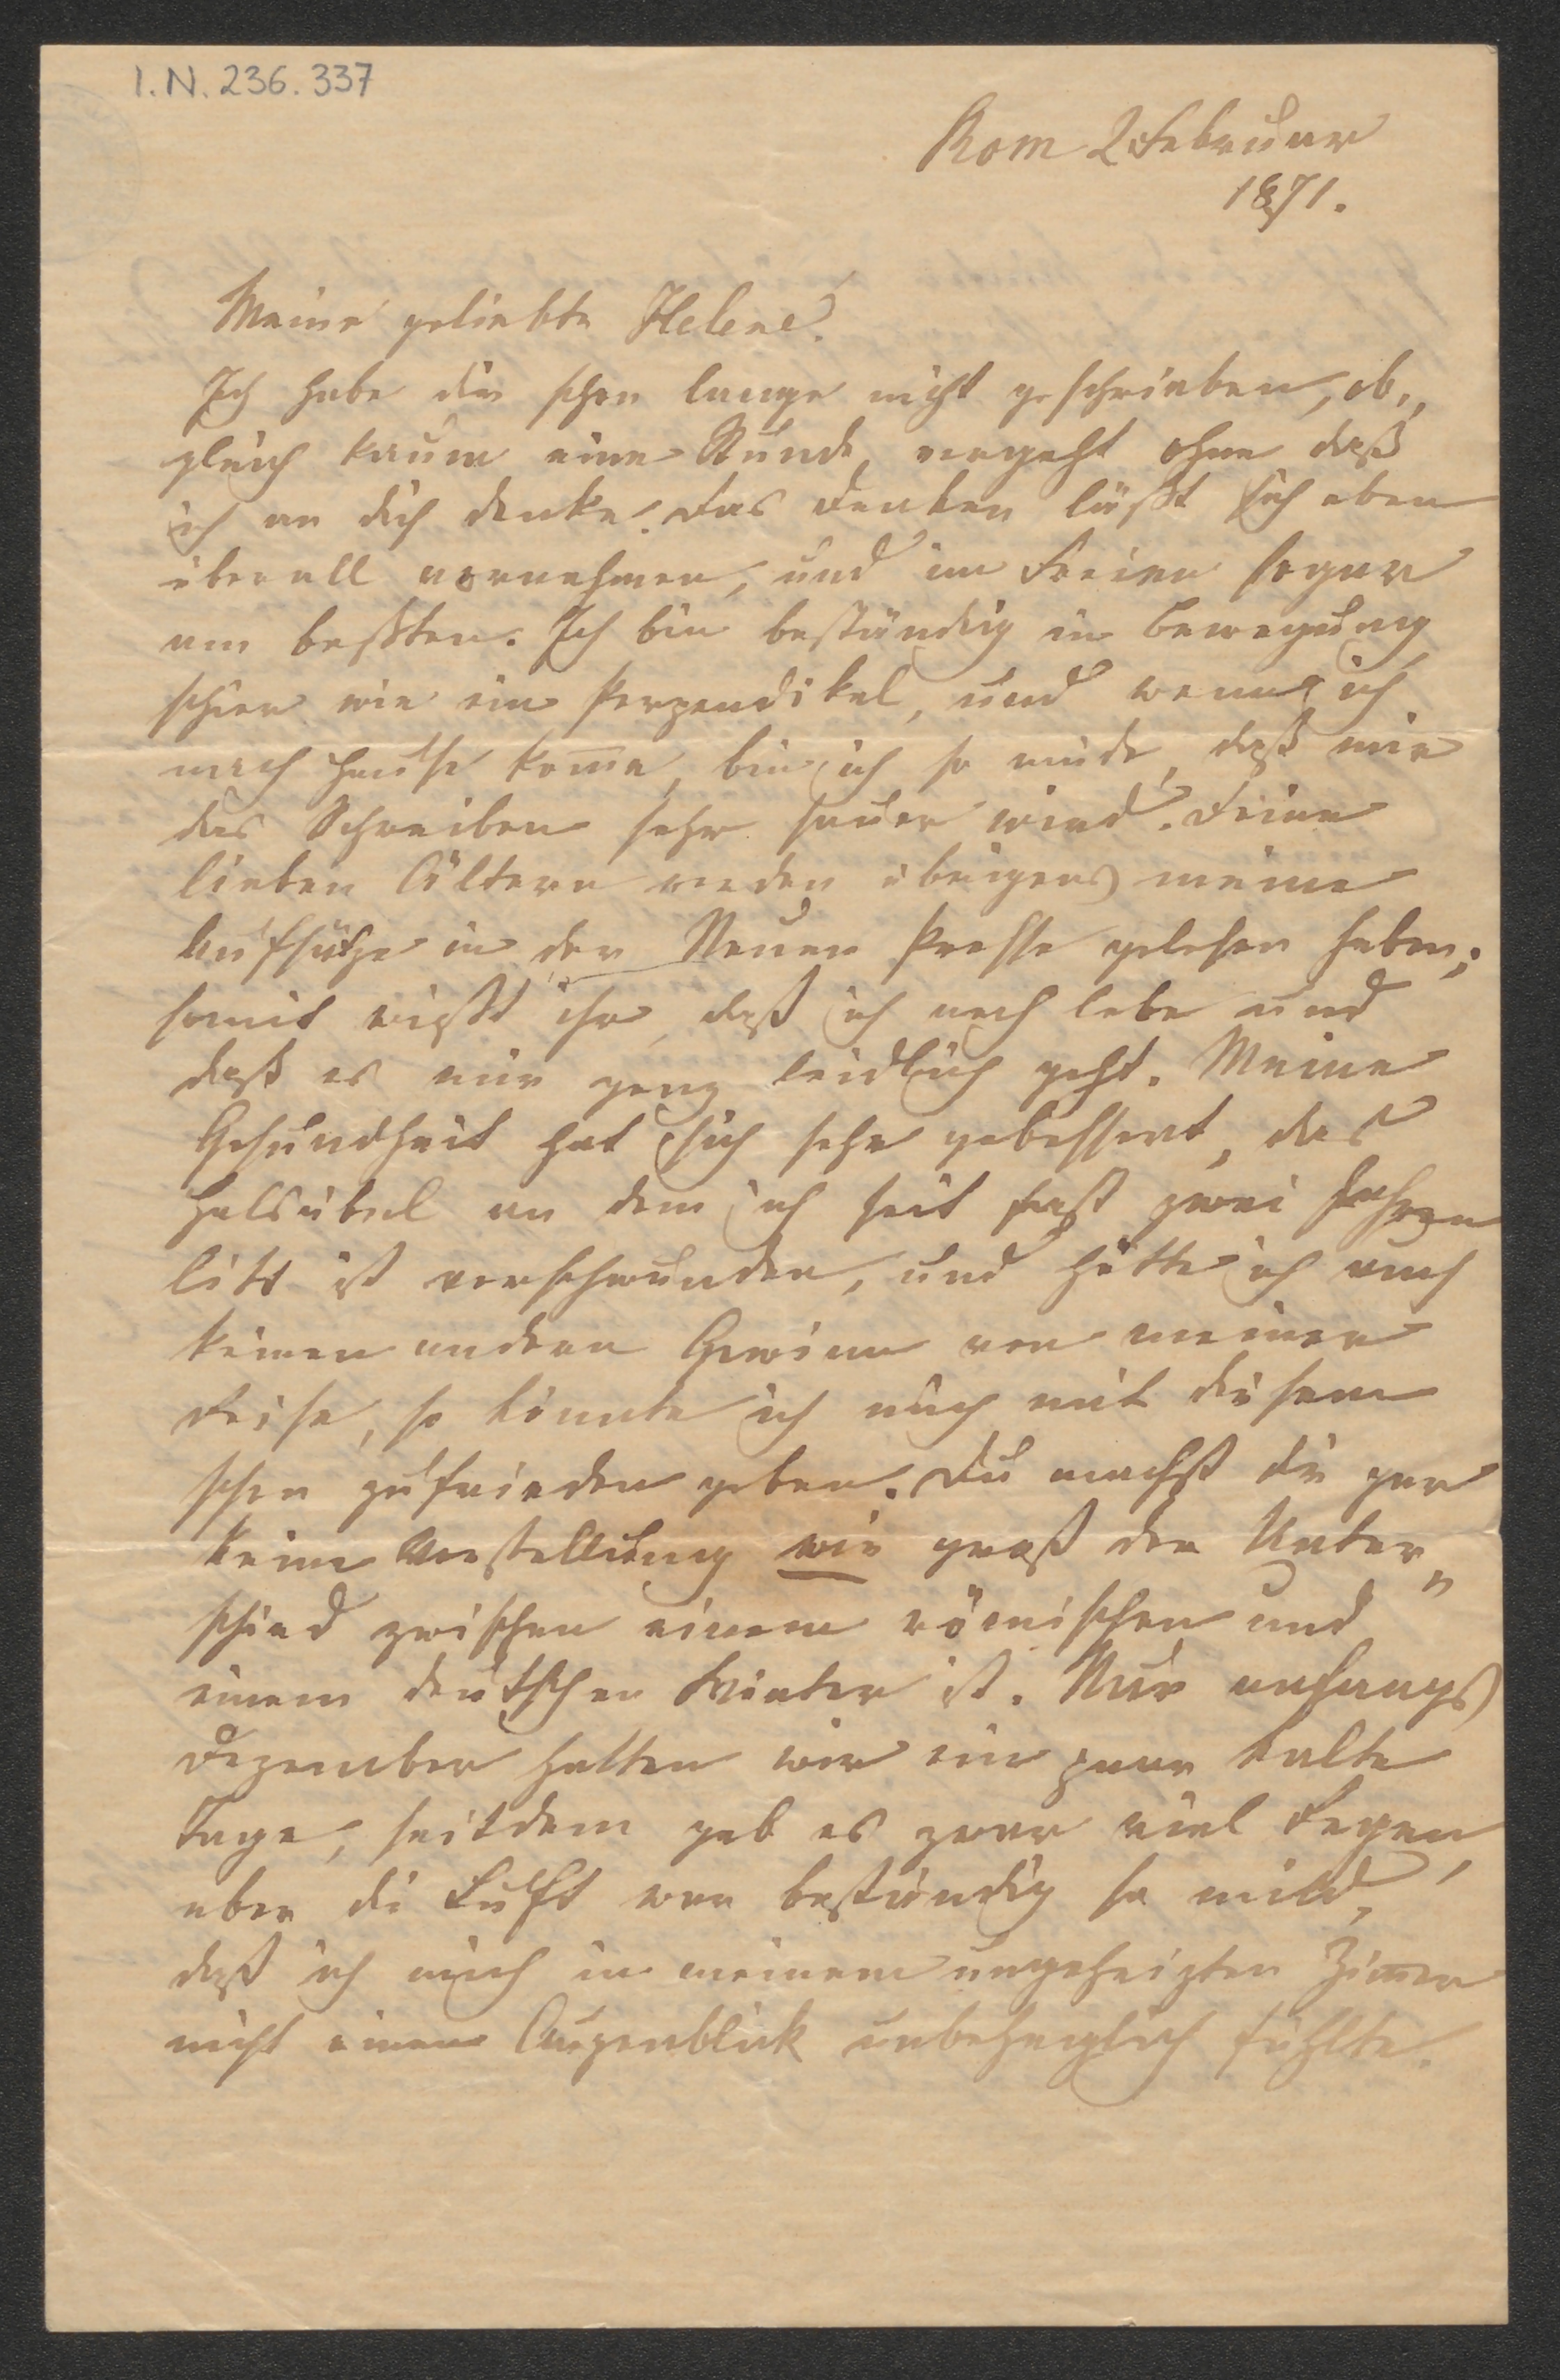 I.N. 236.337
Rom 2 Februar
1871.
Meine geliebte Helene!
Ich habe dir schon lange nicht geschrieben, ob„
gleich kaum eine Stunde vergeht ohne daß
ich an dich denke. Das Denken läßt sich eben
überall vornehmen, und im Freien sogar
am beßten. Ich bin beständig in Bewegung
schier wie ein Perpendikel, und wenn ich
nach Hause kom̄e, bin ich so müde, daß mir
das Schreiben sehr sauer wird. Deine
lieben Ältern werden übrigens meine
Aufsätze in der Neuen Presse gelesen haben;
somit wißt ihr, daß ich noch lebe und
daß es mir ganz leidlich geht. Meine
Gesundheit hat sich sehr gebessert, das
Halsübel an dem ich seit fast zwei Jahren
litt ist verschwunden, und hätte ich auch
keinen andern Gewinn von meiner
Reise, so könnte ich mich mit diesem
schon zufrieden geben. Du machst dir gar
keine Vorstellung wie groß der Unter„
schied zwischen einem römischen und
einem deutschen Winter ist. Nur anfangs
Dezember hatten wir ein paar kalte
Tage, seitdem gab es zwar viel Regen,
aber di Luft war beständig so mild,
daß ich mich in meinem ungeheizten Zim̄er
nicht einen Augenblick unbehaglich fühlte.